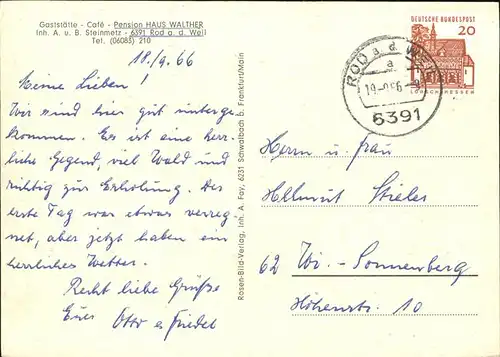 Gaststätte - Café - Pension HAUS WALTHER
Inh. A. u. B. Steinmetz - 6391 Rod a. d. Weil
Tel. (06083) 210
18./9.66
Meine Lieben!
Wir sind hier gut unterge-
kommen. Es ist eine herr-
liche Gegend viel Wald und
richtig zur Erholung. Der
erste Tag war etwas verreg-
net, aber jetzt haben ein
herrliches Wetter.
Recht liebe Grüße
Euer Otto u. Friedel
Rosen-Bild-Verlag, Inh. A. Fay, 6231 Schwalbach b. Frankfurt/Main
DEUTSCHE BUNDESPOST
20
LORSCH/HESSEN
ROD a. d. WEIL
a
6391
Herrn u. Frau
Hellmut Stieler
62 Wi.-Sonnenberg
Höhenstr. 10